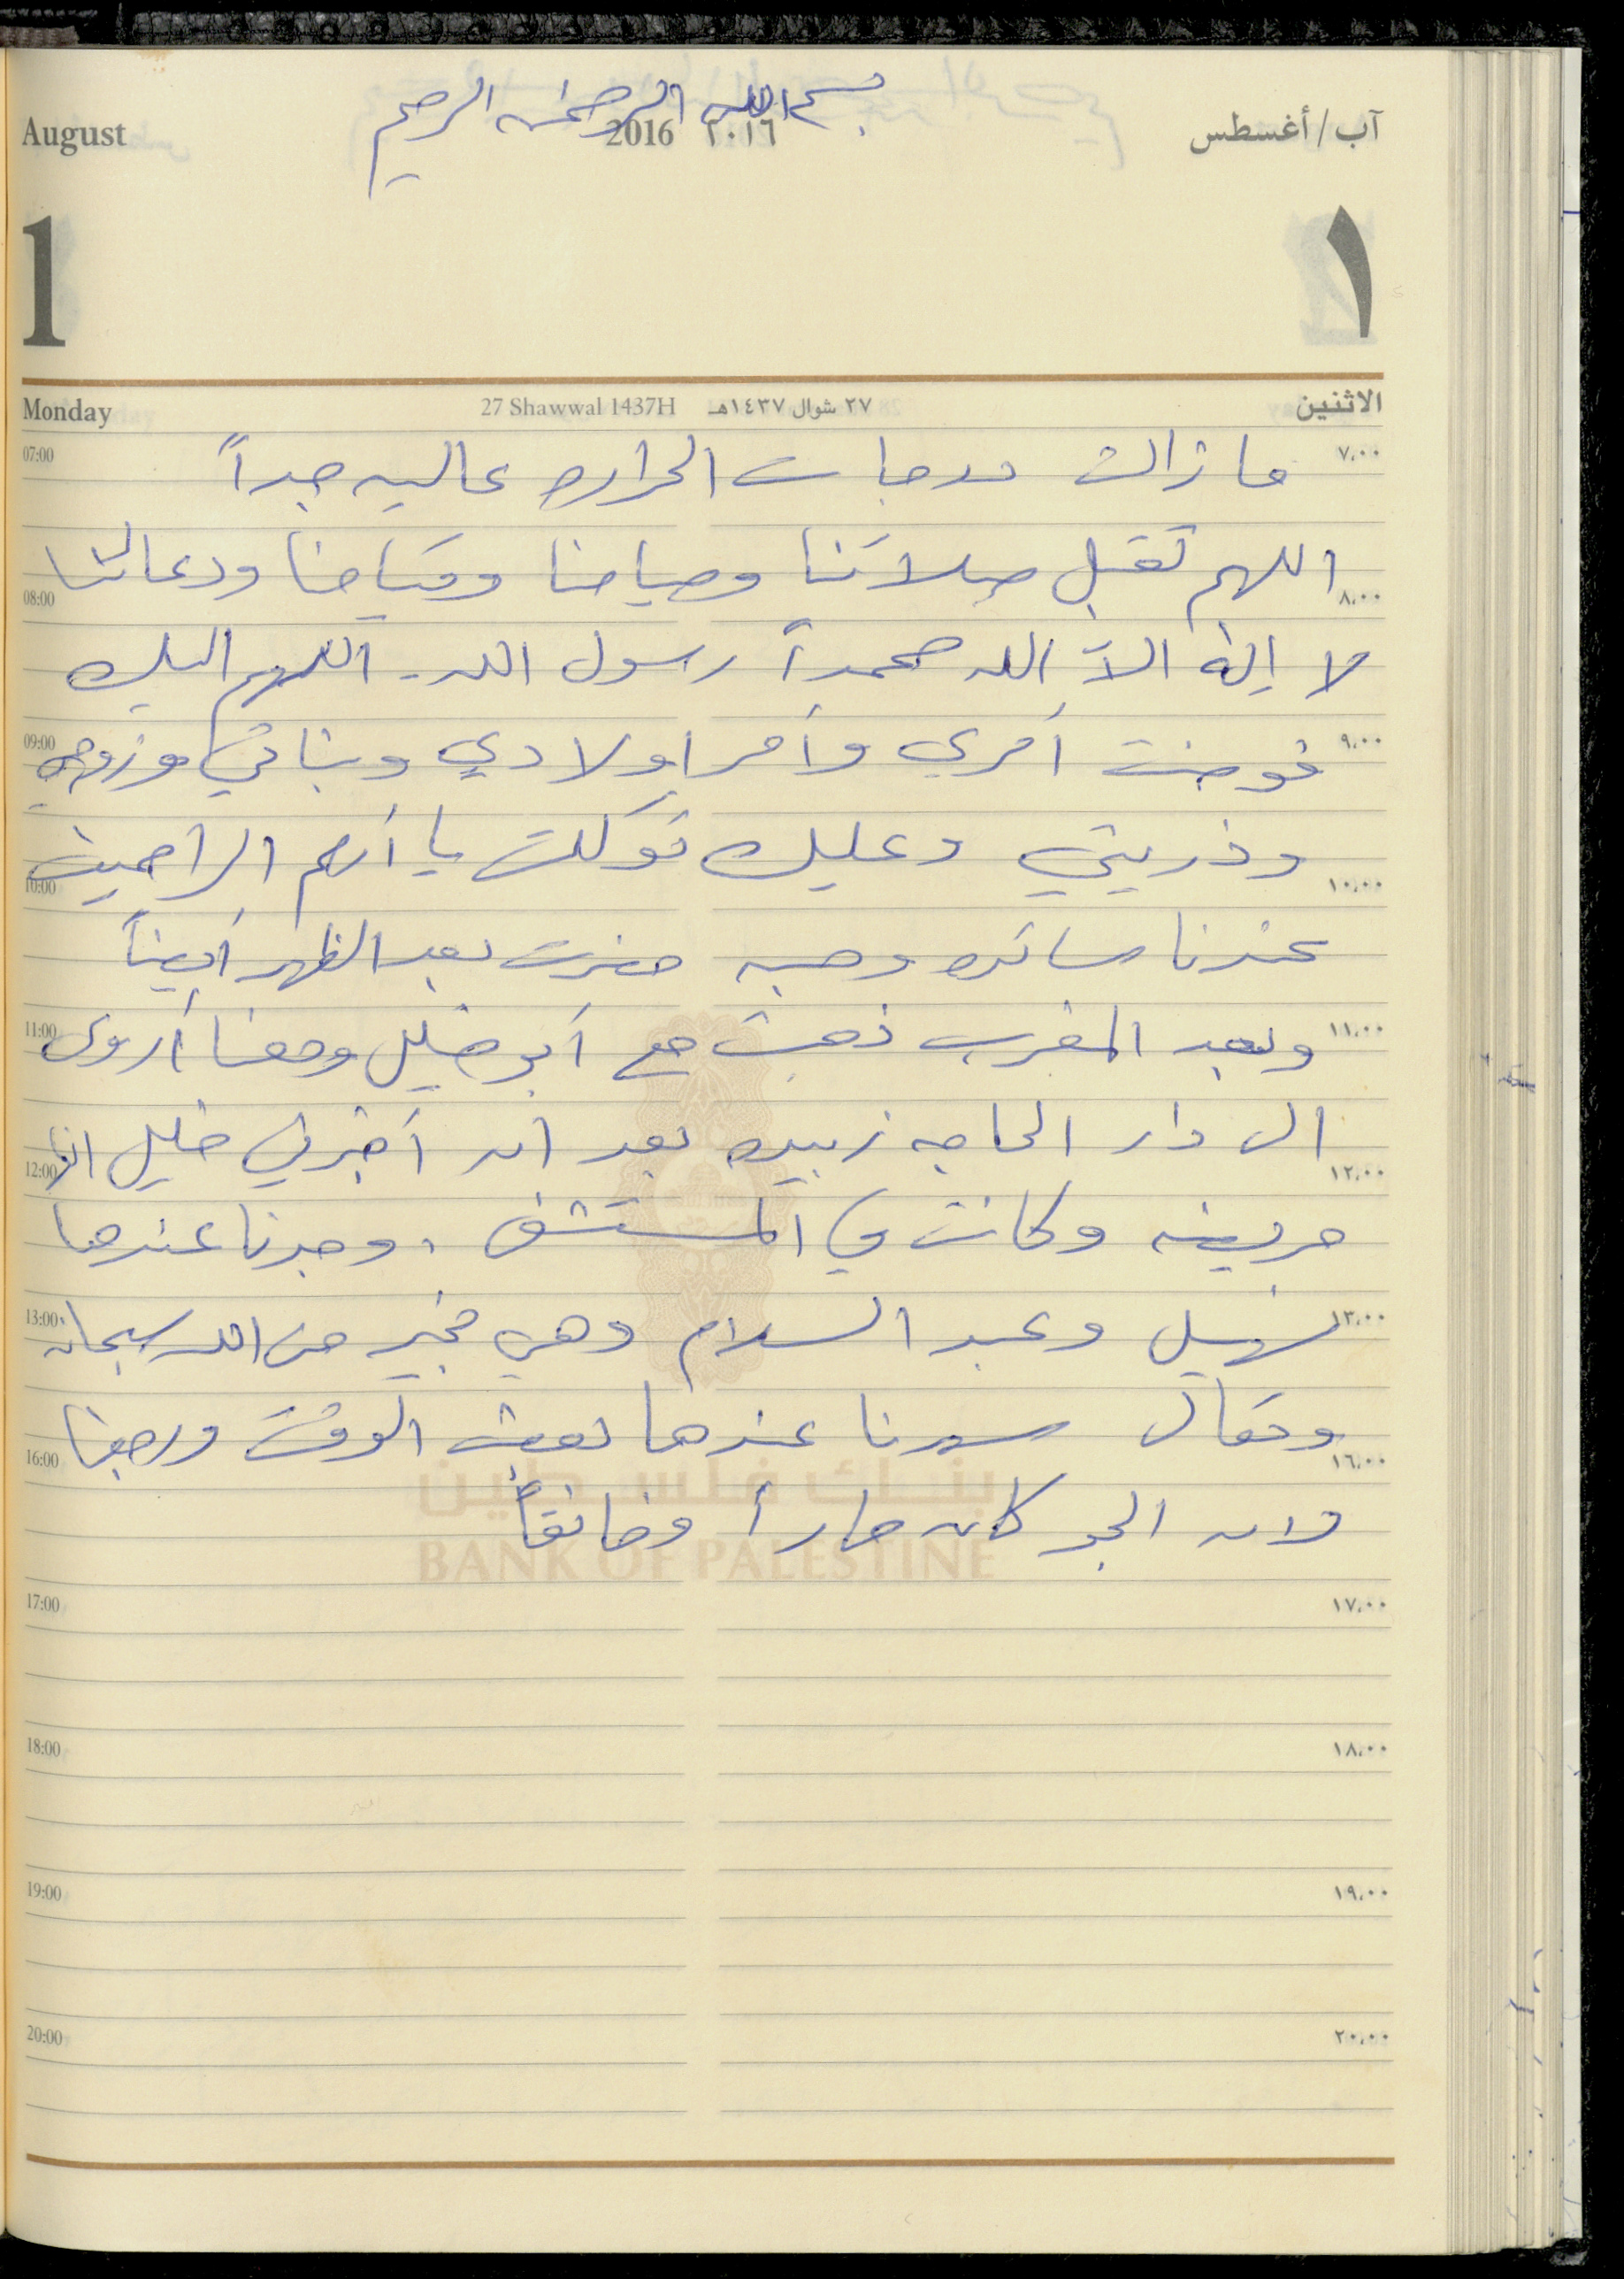 بسم الله الرحمن الرحيم
August 2016 ٢٠١٦ آب/أغسطس
1 ١
Monday 27 Shawwal 1437H ٢٧ شوال ١٤٣٧هـ الاثنين
07:00 ما زالت درجات الحراره عاليه جداً ٧,٠٠
اللهم تقبل صلاتنا وصيامنا وقيامنا ودعائنا
08:00 ٨,٠٠
لا إله الآ الله محمداً رسول الله. اللهم اليك
09:00 فوضت أمري وأمر اولادي وبناتي وزوجي ٩,٠٠
وذريتي وعليك توكلت يا أرحم الراحمين
10:00 ١٠,٠٠
عندنا ساتره وهبه حضرت بعد الظهر أيضاً
11:00 وبعد المغرب ذهبت مع أبو خليل ومعنا أروى ١١,٠٠
الى دار الحاجه زبيده بعد ان أخبرني خليل انها
12:00 ١٢,٠٠
مريضه وكانت في المستشفى. وجدنا عندها
13:00 نهيل وعبد السلام وهي بخير من الله سبحانه ١٣,٠٠
وتعالى سهرنا عندها بعض الوقت ورجعنا
16:00 ١٦,٠٠
بنك فلسطين
ولان الجو كان حاراً وخانقاً
BANK OF PALESTINE
17:00 ١٧,٠٠
18:00 ١٨,٠٠
19:00 ١٩,٠٠
20:00 ٢٠,٠٠